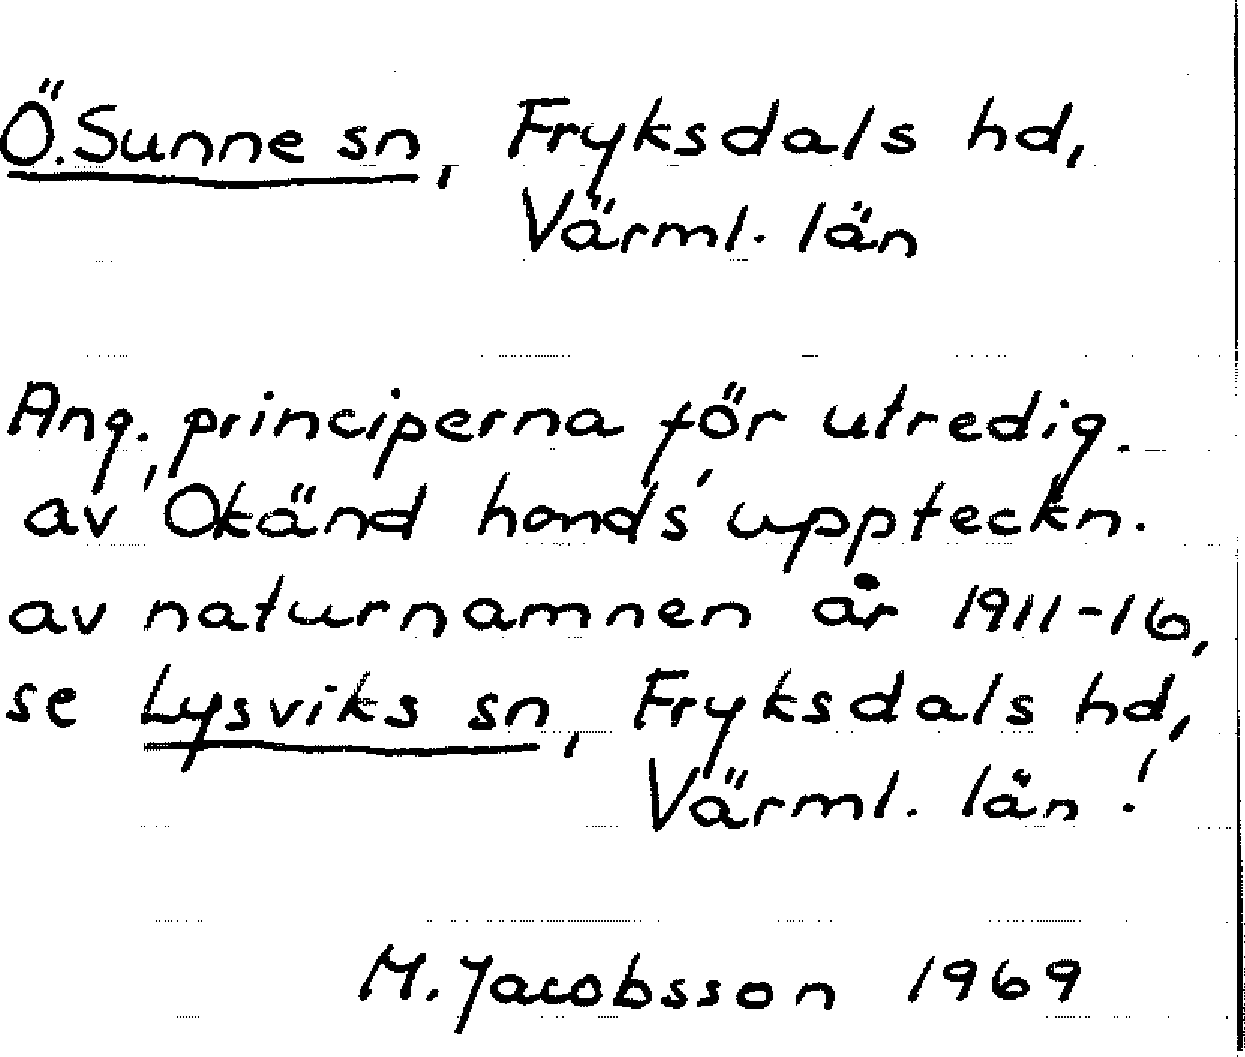 Ö. Sunne sn, Fryksdals hd,
Värml. län
Ang. principerna för utredig.
av 'Okänd hands' uppteckn.
av naturnamnen år 1911-16,
se Lysviks sn, Fryksdals hd,
Värml. län!
M. Jacobsson 1969